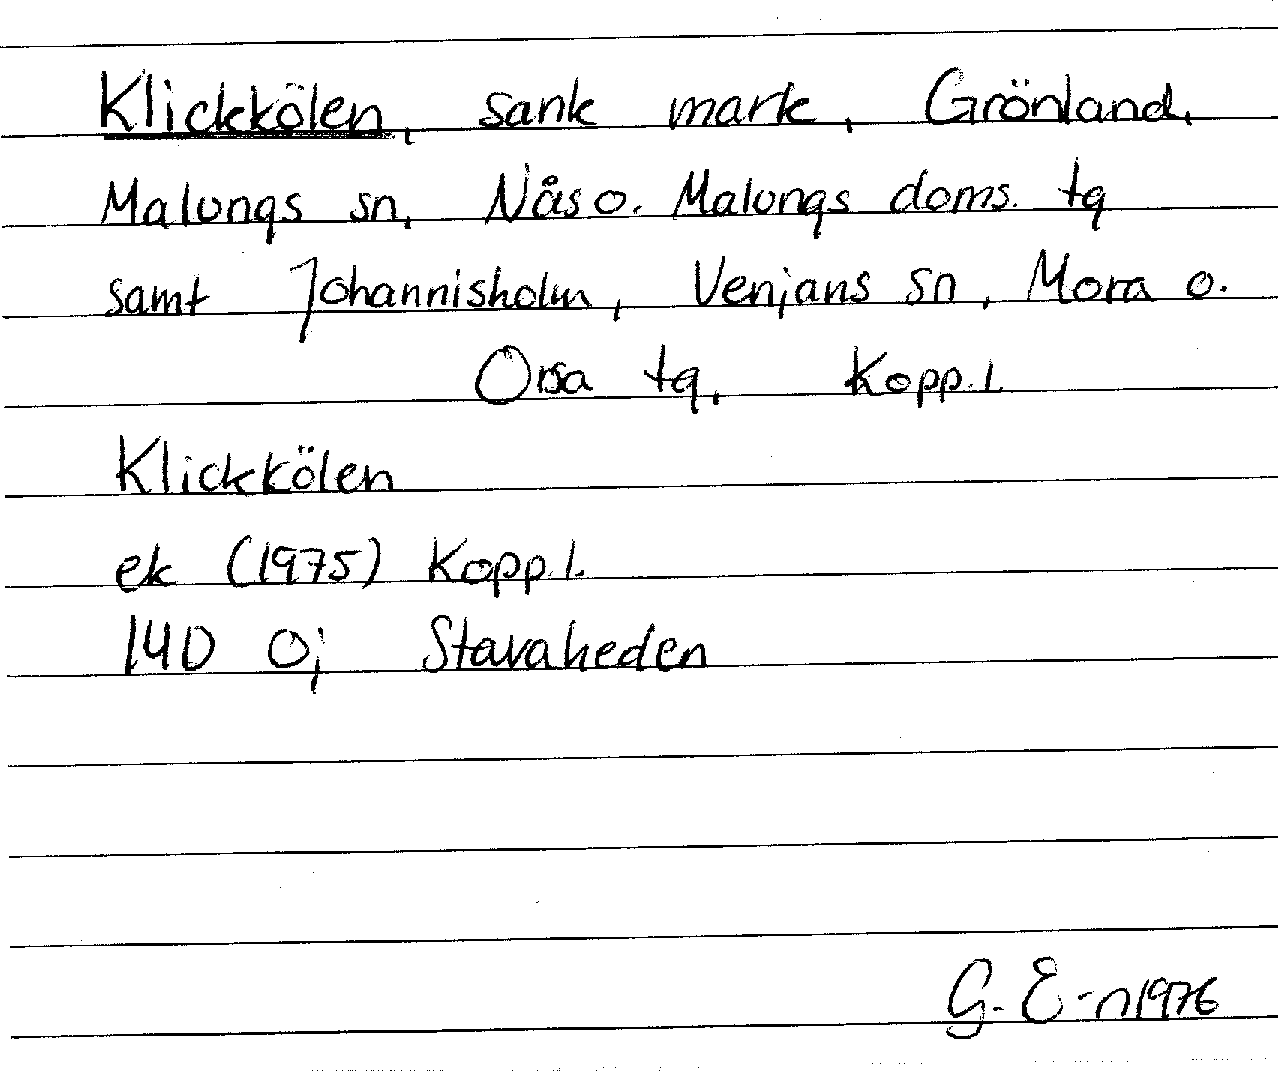 Klickkölen, sank mark, Grönland,
Malungs sn, Nås o. Malungs doms. tg
samt Johannisholm, Venjans sn, Mora o.
Orsa tg, Kopp. l.
Klickkölen
ek (1975) Kopp. l.
14D 0j Stavaheden
G. E-n 1976